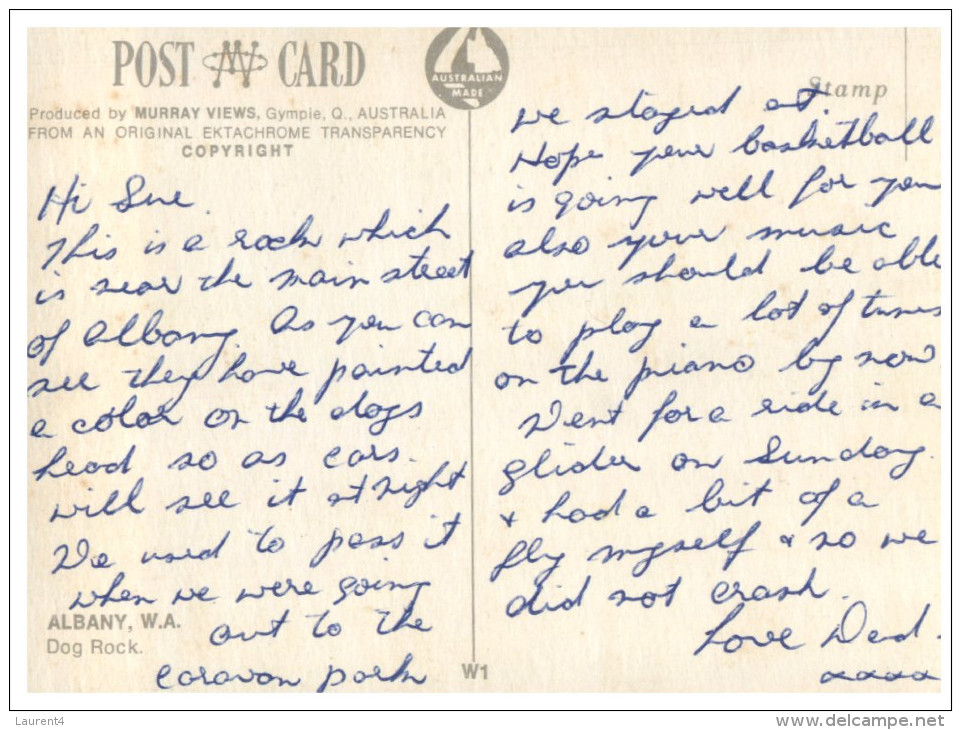 POST CARD
AUSTRALIAN
MADE
Produced by MURRAY VIEWS, Gympie, Q., AUSTRALIA
FROM AN ORIGINAL EKTACHROME TRANSPARENCY
COPYRIGHT
Hi Sue.
This is a rock which
is near the main street
of Albany. As you can
see they have painted
a color on the dogs
head so as cars.
will see it at night
We used to pass it
when we were going
out to the
caravan park
ALBANY, W.A.
Dog Rock.
W1
Stamp
we stayed at.
Hope your basketball
is going well for you
also your music
you should be able
to play a lot of tunes
on the piano by now
Went for a ride in a
glider on Sunday.
& had a bit of a
fly myself & so we
did not crash.
Love Dad.
xxxx
Laurent4
www.delcampe.net